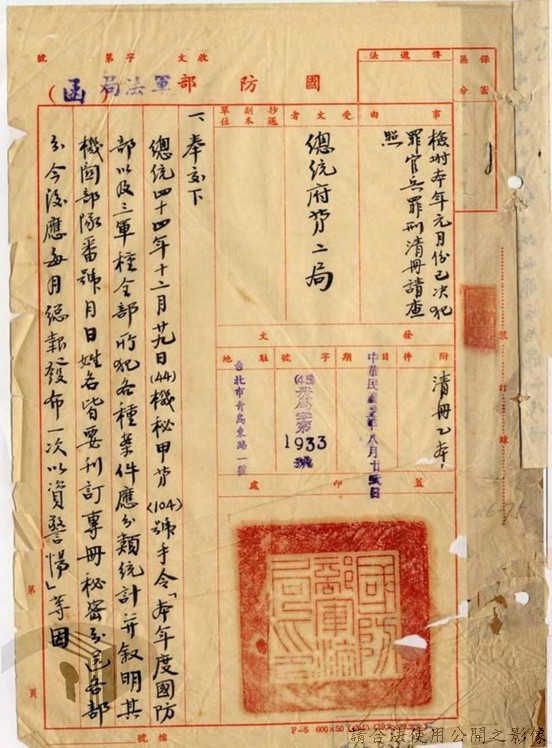 收文 字第 號
國防部軍法局(函)
傳遞法
保密
區分
事由
檢附本年元月份已決犯
罪官兵罪刑清冊請查
照
受文者
總統府第二局
抄送
副本
單位
附件
清冊乙本
發文
日期
字號
駐地
1933
台北市青島東路一號
蓋印處
一、奉交下
總統四十四年十二月廿九日(44)機秘甲第(104)號手令「本年度國防
部以及三軍種全部所犯各種案件應分類統計并敘明其
機關部隊番號月日姓名皆要刊訂專冊秘密分送各部
分今後應每月總報發布一次以資警惕」等因
裝訂線
第 頁
檔號
請合法使用公開之影像